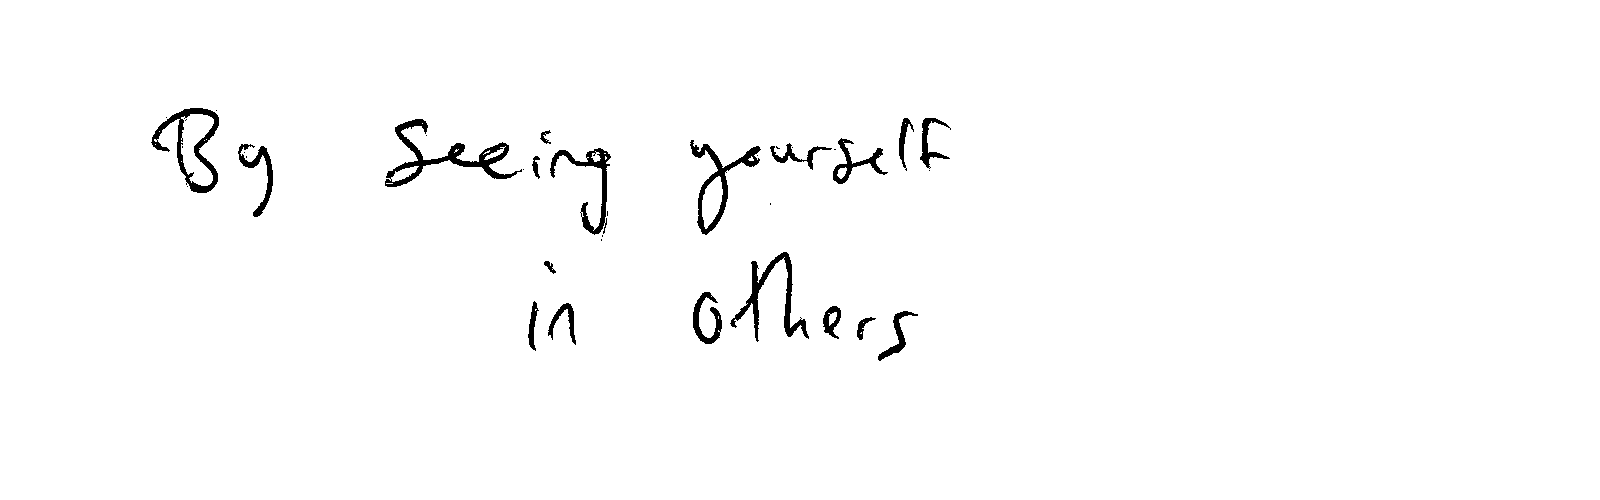 By seeing yourself
in others